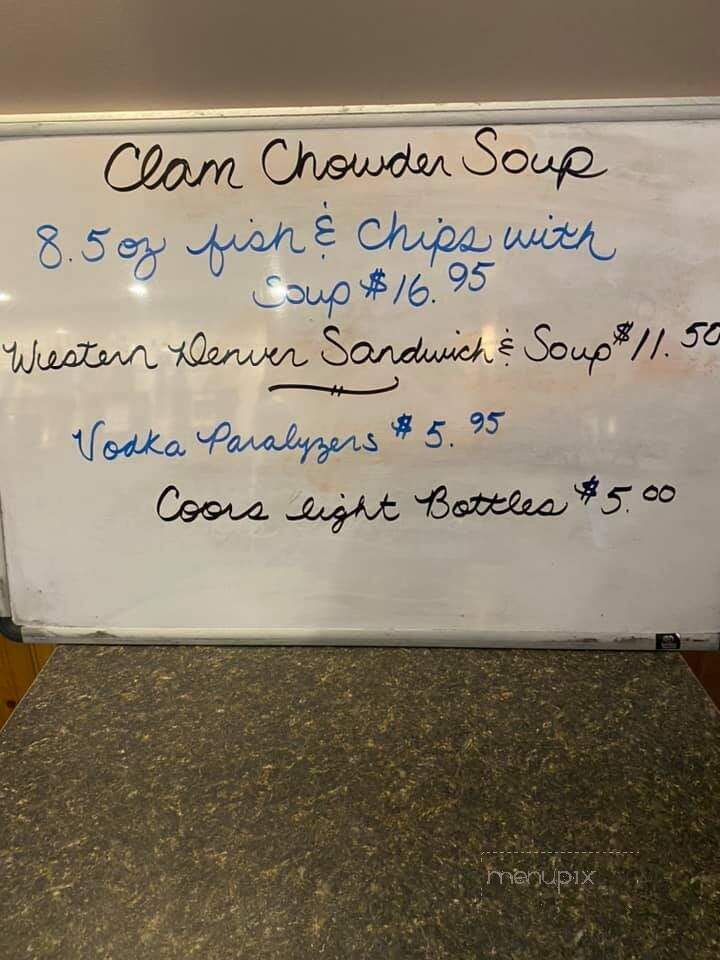 Clam Chowder Soup
8.5 oz fish & Chips with
Soup $16.95
Western Denver Sandwich & Soup $11.50
Vodka Paralyzers $5.95
Coors light Bottles $5.00
menupix